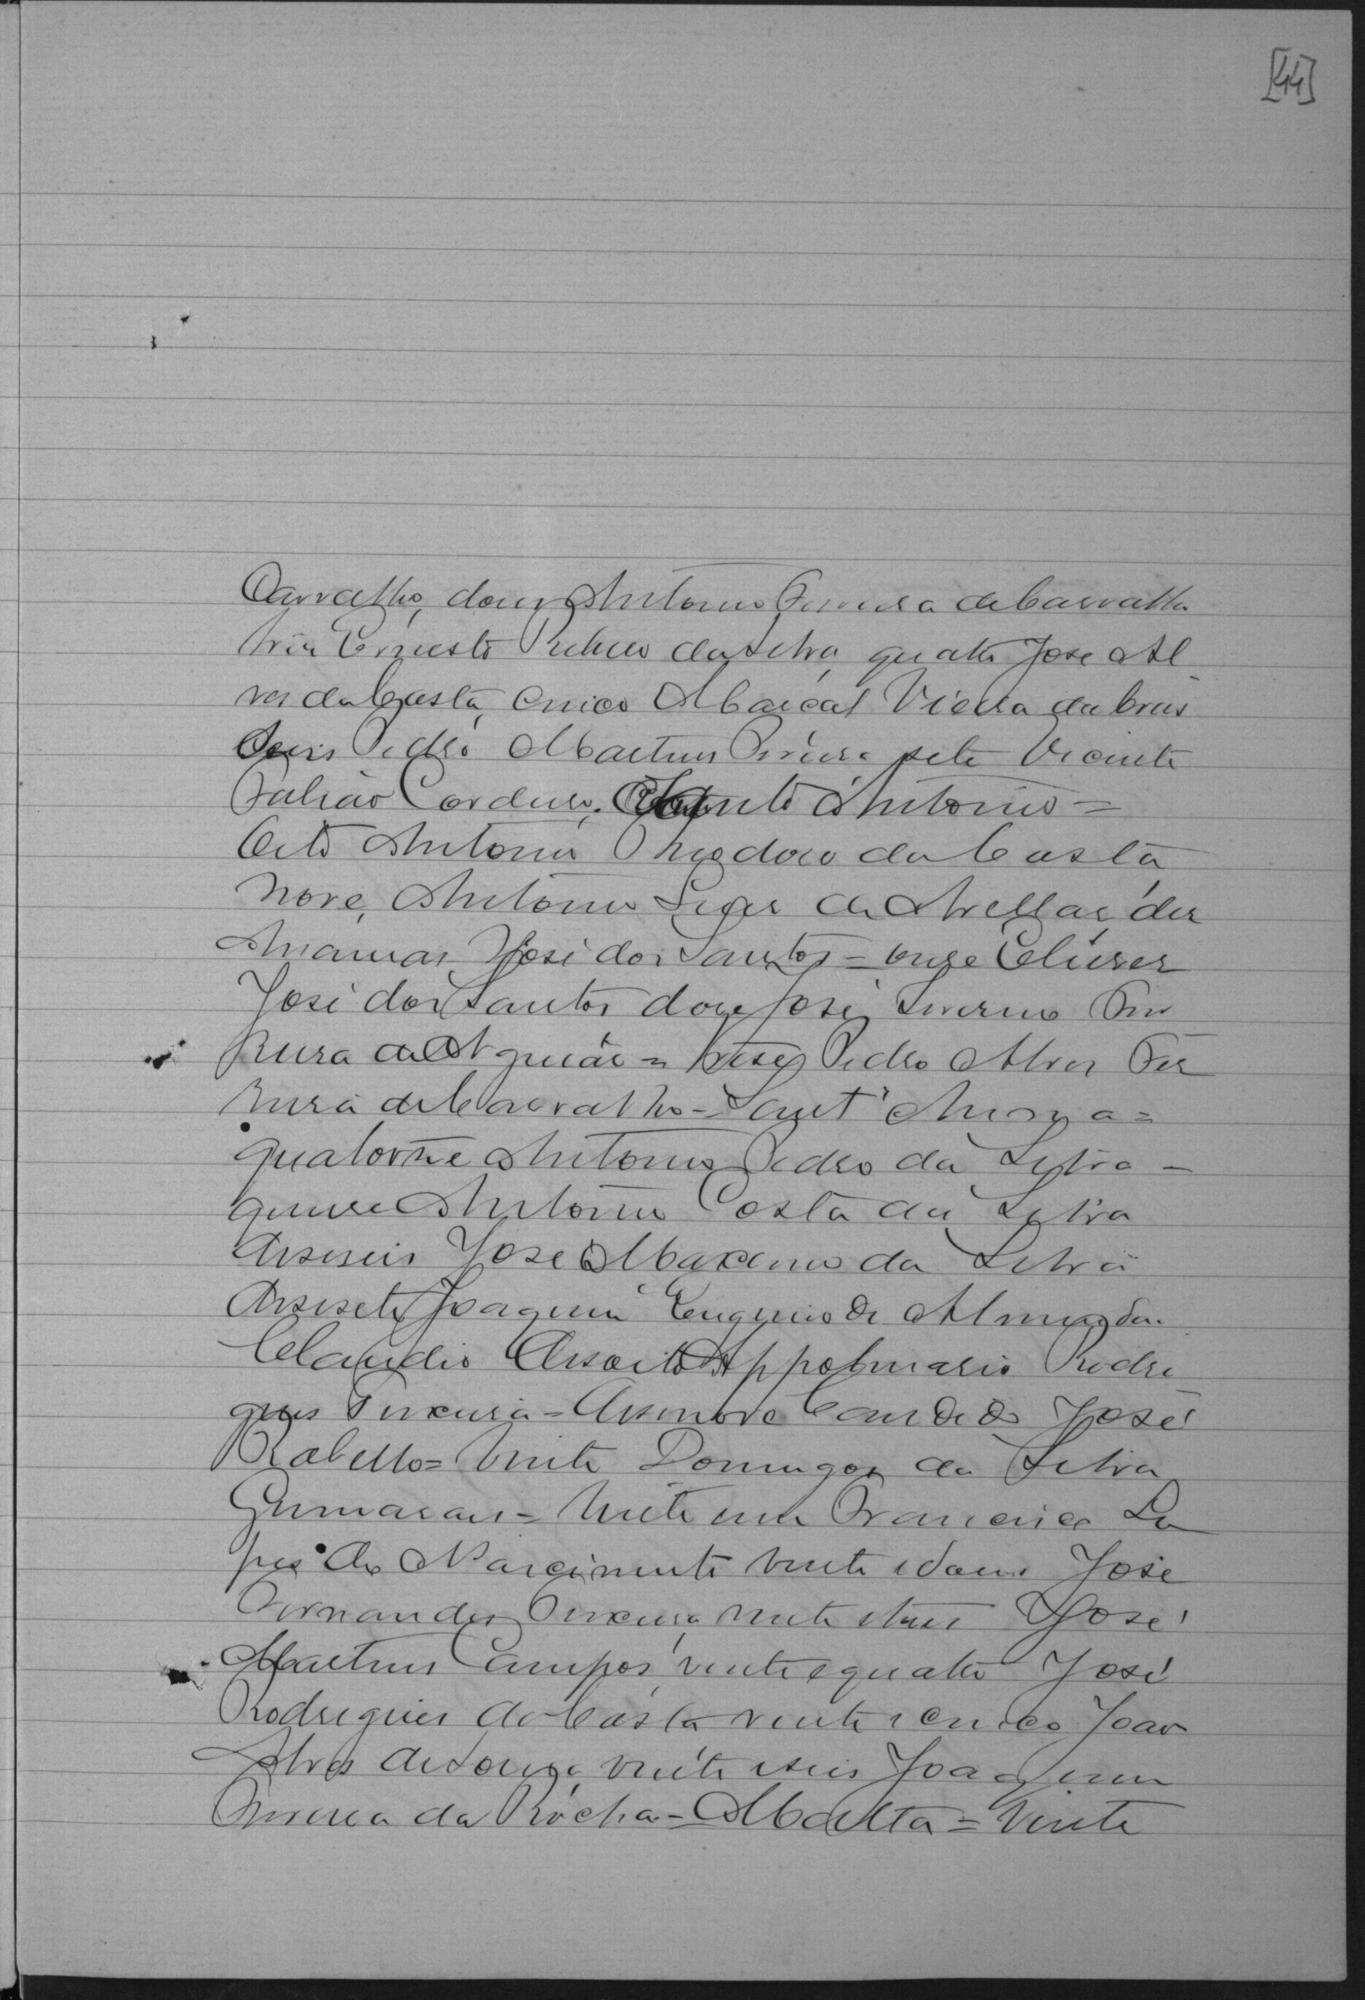 [44]
Carvalho, dous Antonio Ferreira de Carvalho
tres Ernesto Ribeiro da Silva, quatro Jose Al
ves da Costa, cinco Marcal Vieira da Cruz
Seis Pedro Martins Pereira sete Vicente
Galvão Cordeiro, Santo Antonio =
Oito Antonio Theodoro da Costa
nove, Antonio Luis de Avellar, des
Ananias José dos Santos = onze Elieser
José dos Santos doze José Severino Fer
reira de Aguiar = treze Pedro Alves Fer
reira de Carvalho = Sant'Anna =
quatorze Antonio Pedro da Silva =
quinze Antonio Costa da Silva
deseseis Jose Maximo da Silva
desesete Joaquim Eugenio de Almeida
Claudio desoito Appolinario Rodri
gues Teixeira = desenove Candido José
Rabello = vinte Domingos da Silva
Guimarães = vinte um Francisco Lo
pes do Nascimento vinte e dous José
Fernandes Teixeira vinte e tres José
Martins Campos, vinte e quatro José
Rodrigues da Costa vinte e cinco João
Alves de Souza vinte e seis Joaquim
Pereira da Rocha = Malta = Vinte